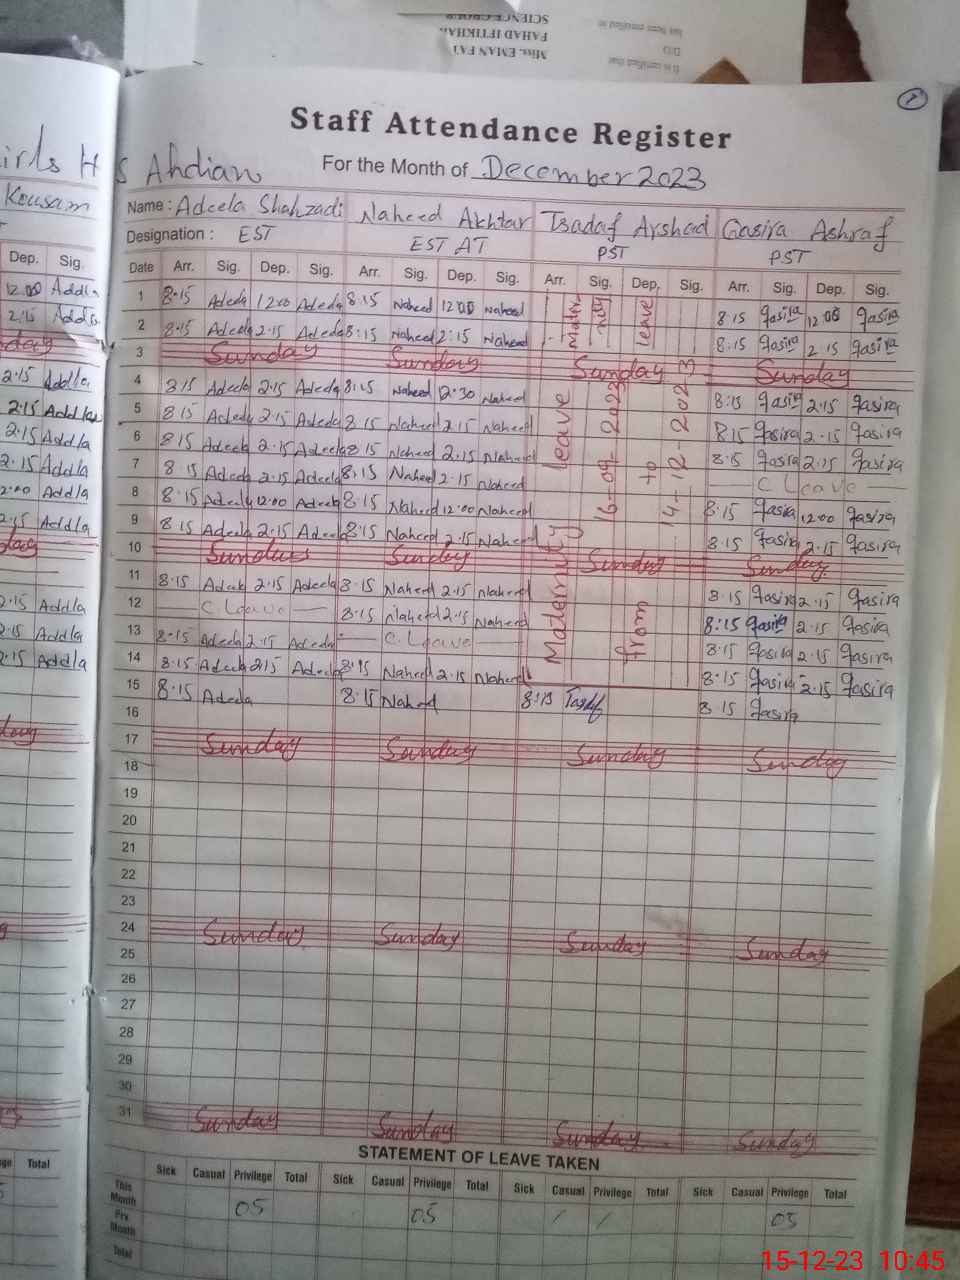 SCIENCE GROUP
FAHAD IFTIKHA
Miss. EMAN FAT
It is certified that
D/O
has been enrolled in
Staff Attendance Register
irls H S Ahdian
For the Month of December 2023
Kousam
Name : Adeela Shahzadi Naheed Akhtar Tsadaf Arshad Gasira Ashraf
Designation : EST EST AT PST PST
Dep. Sig.
Date Arr. Sig. Dep. Sig. Arr. Sig. Dep. Sig. Arr. Sig. Dep. Sig. Arr. Sig. Dep. Sig.
12.00 Addla
1 8.15 Adeela 12.00 Adeela 8.15 Naheed 12.00 Naheed 8.15 Gasira 12.00 Gasira
2.15 Addla
2 8.15 Adeela 2.15 Adeela 8:15 Naheed 2:15 Naheed 8:15 Gasira 2.15 Gasira
3 Sunday Sunday Sunday Sunday
2.15 Addla
4 8.15 Adeela 2.15 Adeela 8.15 Naheed 12.30 Naheed 8:15 Gasira 2.15 Gasira
2.15 Addla
5 8.15 Adeela 2.15 Adeela 8.15 Naheed 2.15 Naheed 8.15 Gasira 2.15 Gasira
2.15 Addla
6 8.15 Adeela 2.15 Adeela 8.15 Naheed 2.15 Naheed 8.15 Gasira 2.15 Gasira
2.15 Addla
7 8.15 Adeela 2.15 Adeela 8.15 Naheed 2.15 Naheed C Leave
2.00 Addla
8 8.15 Adeela 12.00 Adeela 8.15 Naheed 12.00 Naheed 8.15 Gasira 12.00 Gasira
2.15 Addla
9 8.15 Adeela 2.15 Adeela 8.15 Naheed 2.15 Naheed 8.15 Gasira 2.15 Gasira
10 Sunday Sunday Sunday Sunday
11 8.15 Adeela 2.15 Adeela 8.15 Naheed 2.15 Naheed 8.15 Gasira 2.15 Gasira
2.15 Addla
12 C. Leave 8.15 Naheed 2.15 Naheed 8:15 Gasira 2.15 Gasira
2.15 Addla
13 8.15 Adeela 2.15 Adeela C. Leave 8.15 Gasira 2.15 Gasira
2.15 Addla
14 8.15 Adeela 2.15 Adeela 8.15 Naheed 2.15 Naheed 8.15 Gasira 2.15 Gasira
15 8.15 Adeela 8.15 Naheed 8:15 8.15 Gasira
leave
Maternity leave
16-09-2023
from to
14-12-2023
16
17 Sunday Sunday Sunday Sunday
18
19
20
21
22
23
24 Sunday Sunday Sunday Sunday
25
26
27
28
29
30
31 Sunday Sunday Sunday Sunday
STATEMENT OF LEAVE TAKEN
Total
Sick Casual Privilege Total Sick Casual Privilege Total Sick Casual Privilege Total Sick Casual Privilege Total
This Month 05 05 / / 05
Prv Month
Total
15-12-23 10:45